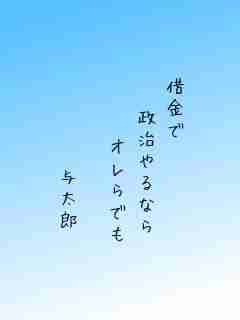 借金で
政治やるなら
オレらでも
与太郎